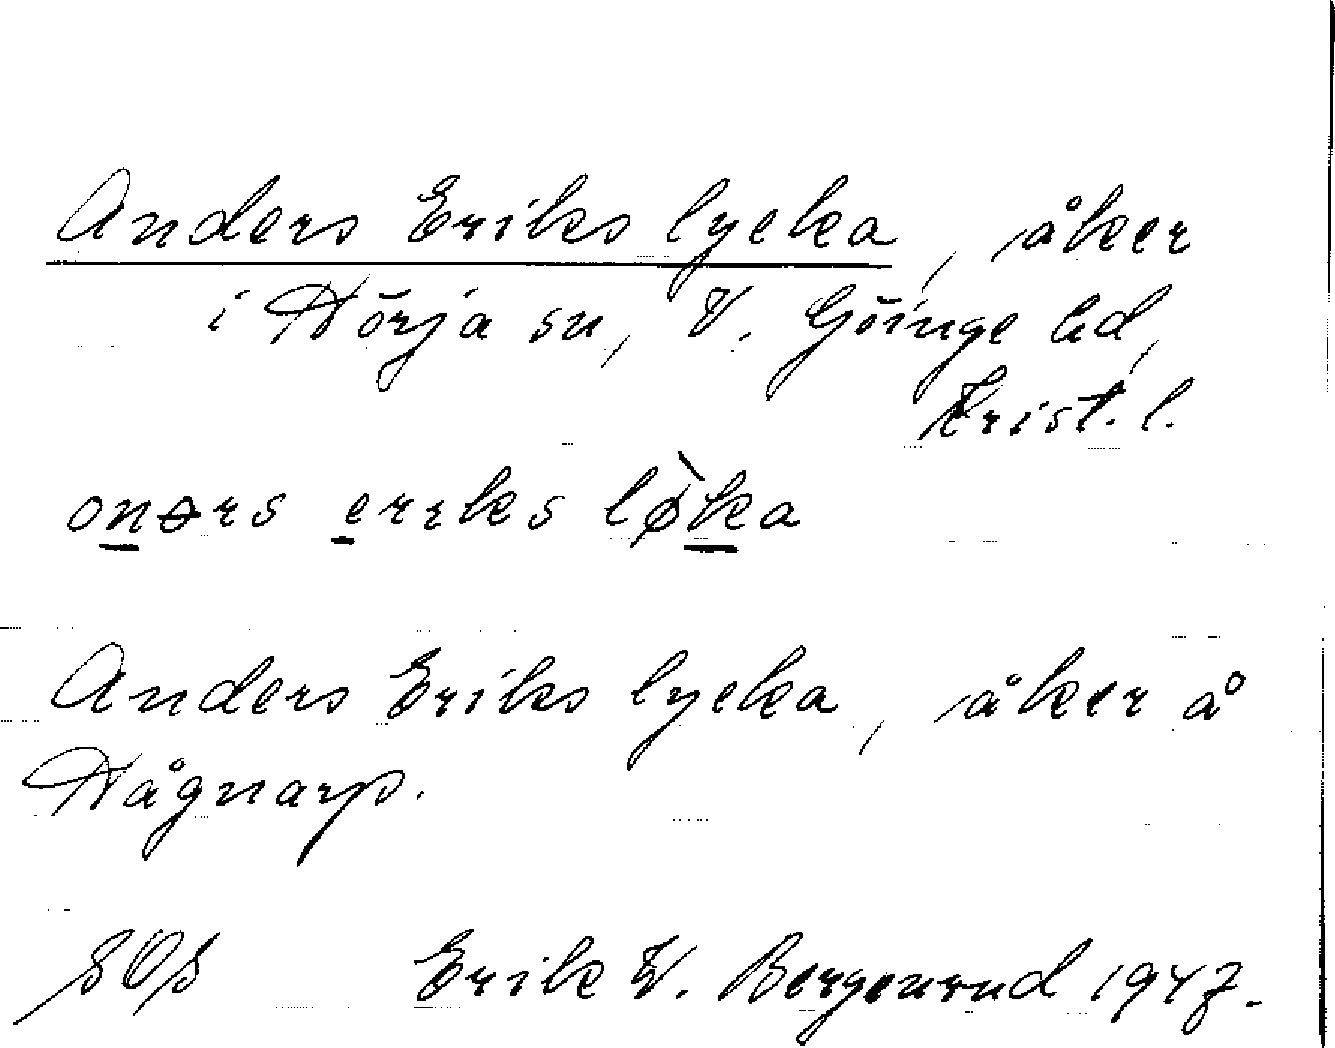 Anders Eriks lycka, åker
i Hörja sn, V. Göinge hd,
Krist. l.
onərs erıks lø̀ka
Anders Eriks lycka, åker å
Hågnarp.
SOS Erik W. Bergenrud 1947.